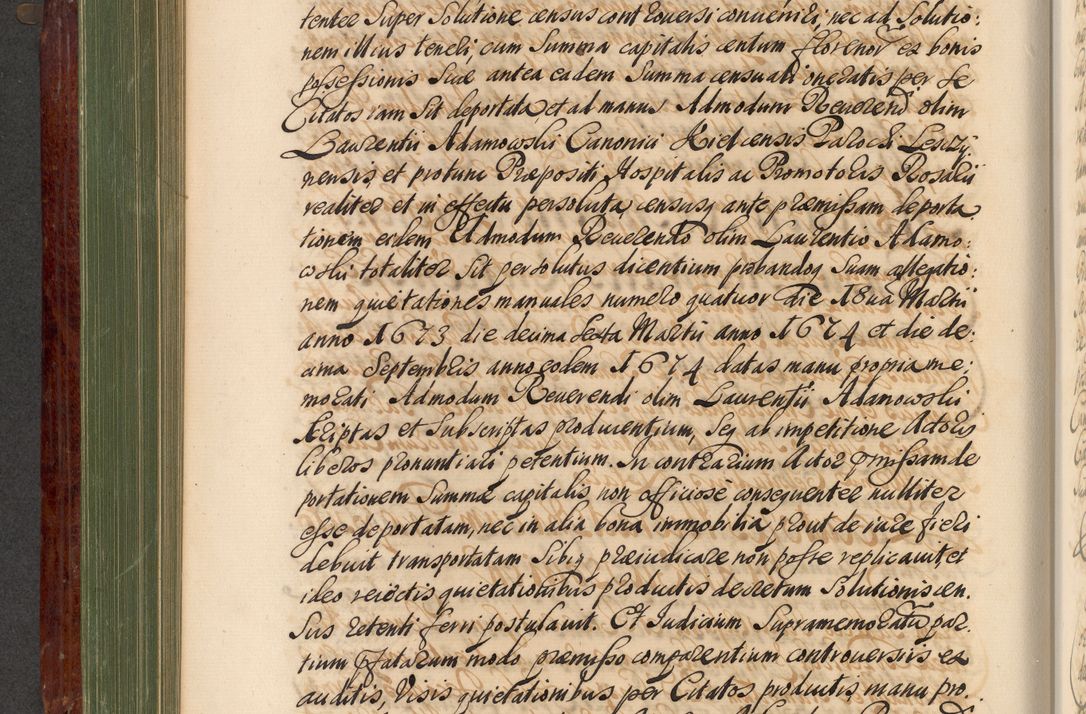 tentee Super Solutione census controversi conueniri, nec ad Solutio:
nem illius teneri, cum Summa capitalis centum florenor ex bonis
possessionis Suæ antea eadem Summa censuali oneratis per se
Citatos iam Sit deportata et ad manus Admodum Reuerend olim
Laurentii Adamowski Canonici Kielcensis Parochi Leszy
nensis, et protunc Præpositi Hospitalis ac Promotoris Rosarii
realiter et in effectu persoluta, censusq ante præmissam deporta
tionem eidem Admodum Reuerendo olim Laurentio Adamo:
wski totaliter Sit persolutus dicentium probandoq Suam allegatio:
nem quietationes manuales numero quatuor die 18ua Martii
anno 1673 die decima Sexta Martii anno 1674 et die de:
cima Septembris anno eodem 1674 datas manu propria me:
morati Admodum Reuerendi olim Laurentii Adamowski
Scriptas et Subscriptas producentium, Seq ab impetitione Actoris
liberos pronuntiari petentium. In contrarium Actor pmissam de
portationem Summæ capitalis non officiose consequenter nulliter
esse deportatam, nec in alia bona immobilia prout de iure fieri
debuit transportatam Sibiq præiudicare non posse replicauit, et
ideo reiectis quietationibus productis decretum Solutionis cen.
Sus retenti ferri postulauit. Et Judicium Supramemoratu par.
tium pfatarum modo præmisso comparentium controuersiis ex
auditis, Visis quietationibus per Citatos productis manu pro.